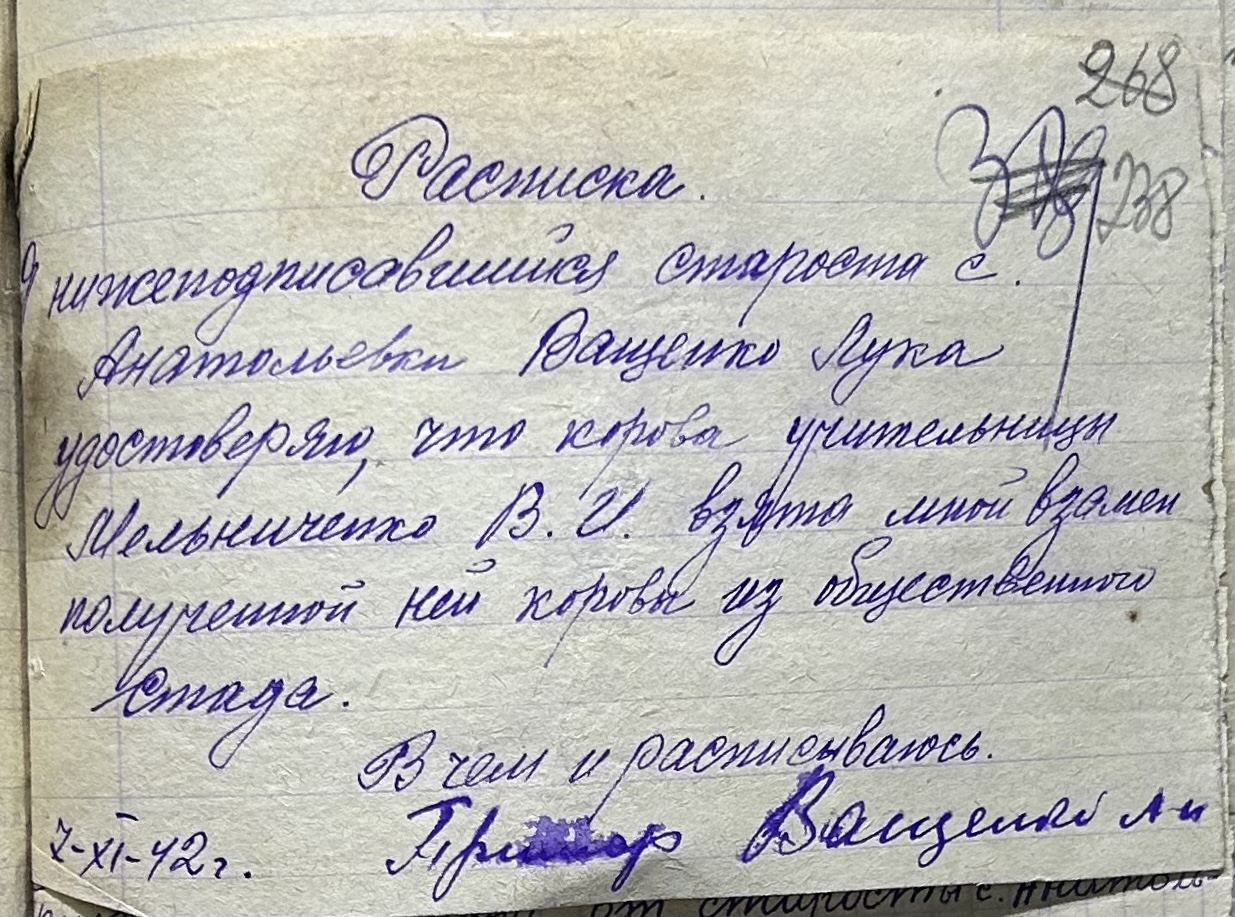 268
238
Расписка.
Я нижеподписавшийся староста с.
Анатольевки Ващенко Лука
удостоверяю, что корова учительницы
Мельниченко В. И. взята мной взамен
полученной ней коровы из общественного
стада.
В чем и расписываюсь.
7-XI-42 г. Примар Ващенко
старосты с. Анатоль-